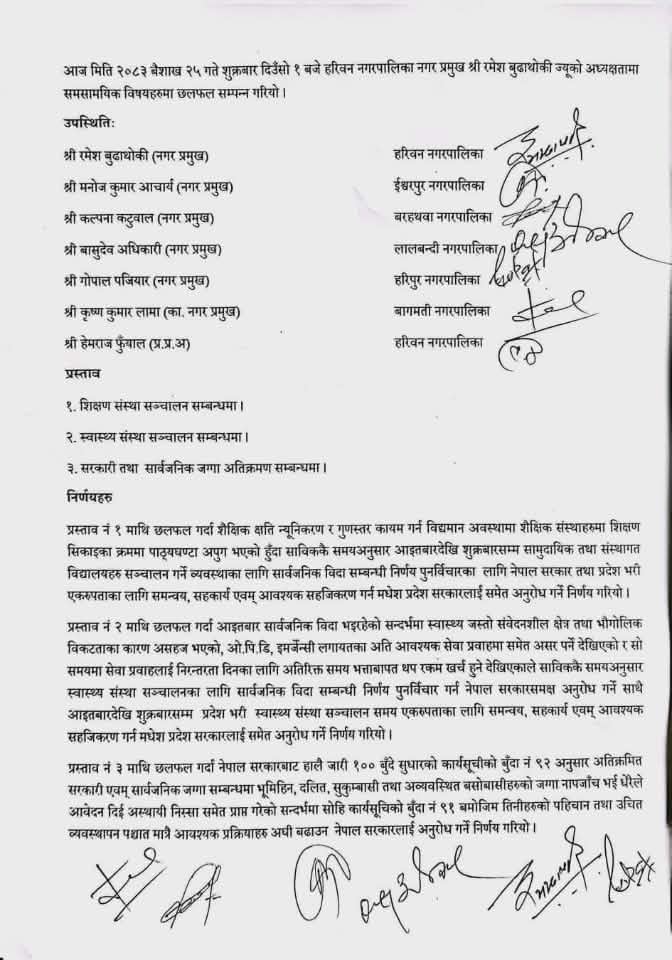 आज मिति २०८३ बैशाख २५ गते शुक्रबार दिउँसो १ बजे हरिवन नगरपालिका नगर प्रमुख श्री रमेश बुढाथोकी ज्यूको अध्यक्षतामा
समसामयिक विषयहरुमा छलफल सम्पन्न गरियो ।
उपस्थितिः
श्री रमेश बुढाथोकी (नगर प्रमुख) हरिवन नगरपालिका
श्री मनोज कुमार आचार्य (नगर प्रमुख) ईश्वरपुर नगरपालिका
श्री कल्पना कटुवाल (नगर प्रमुख) बरहथवा नगरपालिका
श्री बासुदेव अधिकारी (नगर प्रमुख) लालबन्दी नगरपालिका
श्री गोपाल पजियार (नगर प्रमुख) हरिपुर नगरपालिका
श्री कृष्ण कुमार लामा (का. नगर प्रमुख) बागमती नगरपालिका
श्री हेमराज फुँयाल (प्र.प्र.अ) हरिवन नगरपालिका
प्रस्ताव
१. शिक्षण संस्था सञ्चालन सम्बन्धमा ।
२. स्वास्थ्य संस्था सञ्चालन सम्बन्धमा ।
३. सरकारी तथा सार्वजनिक जग्गा अतिक्रमण सम्बन्धमा ।
निर्णयहरु
प्रस्ताव नं १ माथि छलफल गर्दा शैक्षिक क्षति न्यूनिकरण र गुणस्तर कायम गर्न विद्यमान अवस्थामा शैक्षिक संस्थाहरुमा शिक्षण
सिकाइका क्रममा पाठ्यघण्टा अपुग भएको हुँदा साविककै समयअनुसार आइतबारदेखि शुक्रबारसम्म सामुदायिक तथा संस्थागत
विद्यालयहरु सञ्चालन गर्ने व्यवस्थाका लागि सार्वजनिक विदा सम्बन्धी निर्णय पुनर्विचारका लागि नेपाल सरकार तथा प्रदेश भरी
एकरुपताका लागि समन्वय, सहकार्य एवम् आवश्यक सहजिकरण गर्न मधेश प्रदेश सरकारलाई समेत अनुरोध गर्ने निर्णय गरियो ।
प्रस्ताव नं २ माथि छलफल गर्दा आइतबार सार्वजनिक विदा भइरहेको सन्दर्भमा स्वास्थ्य जस्तो संवेदनशील क्षेत्र तथा भौगोलिक
विकटताका कारण असहज भएको, ओ.पि.डि, इमर्जेन्सी लगायतका अति आवश्यक सेवा प्रवाहमा समेत असर पर्ने देखिएको र सो
समयमा सेवा प्रवाहलाई निरन्तरता दिनका लागि अतिरिक्त समय भत्ताबापत थप रकम खर्च हुने देखिएकाले साविककै समयअनुसार
स्वास्थ्य संस्था सञ्चालनका लागि सार्वजनिक विदा सम्बन्धी निर्णय पुनर्विचार गर्न नेपाल सरकारसमक्ष अनुरोध गर्ने साथै
आइतबारदेखि शुक्रबारसम्म प्रदेश भरी स्वास्थ्य संस्था सञ्चालन समय एकरुपताका लागि समन्वय, सहकार्य एवम् आवश्यक
सहजिकरण गर्न मधेश प्रदेश सरकारलाई समेत अनुरोध गर्ने निर्णय गरियो ।
प्रस्ताव नं ३ माथि छलफल गर्दा नेपाल सरकारबाट हालै जारी १०० बुँदे सुधारको कार्यसूचीको बुँदा नं ९२ अनुसार अतिक्रमित
सरकारी एवम् सार्वजनिक जग्गा सम्बन्धमा भूमिहिन, दलित, सुकुम्बासी तथा अव्यवस्थित बसोबासीहरुको जग्गा नापजाँच भई धेरैले
आवेदन दिई अस्थायी निस्सा समेत प्राप्त गरेको सन्दर्भमा सोहि कार्यसूचिको बुँदा नं ९१ बमोजिम तिनीहरुको पहिचान तथा उचित
व्यवस्थापन पश्चात मात्रै आवश्यक प्रक्रियाहरु अघी बढाउन नेपाल सरकारलाई अनुरोध गर्ने निर्णय गरियो ।